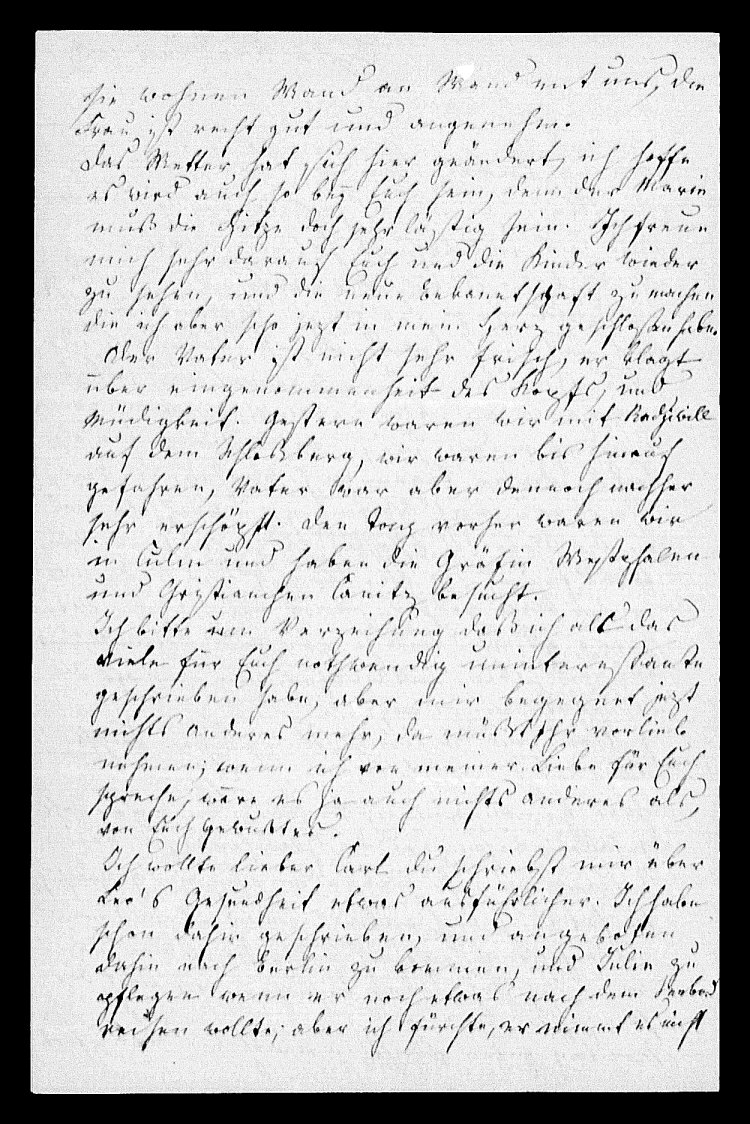 sie wohnen Wand an Wand mit uns, die
Frau ist recht gut und angenehm.
Das Wetter hat sich hier geändert, ich hoffe
es wird auch so bey Euch sein, denn der Marie
muß die Hitze doch sehr lästig sein. Ich freue
mich sehr darauf Euch und die Kinder wieder
zu sehen, und die neue bekanntschaft zu machen
die ich aber scho jezt in mein Herz geschloßen habe.
Der Vater ist nicht sehr frisch, er klagt
über eingenommenheit des Kopfs, und
Müdigkeit. Gestern waren wir mit Radziwill
auf dem Schloßberg, wir waren bis hinauf
gefahren, Vater war aber dennoch nachher
sehr erschöpft. den Tag vorher waren wir
in Culm und haben die Gräfin Westphalen
und Christianchen Canitz besucht.
Ich bitte um Verzeihung daß ich all das
viele für Euch nothwendig uninteressante
geschrieben habe, aber mir begegnet jezt
nichts anderes mehr, da müßt Ihr vorlieb
nehmen; wenn ich von meiner Liebe für Euch
spreche, wäre es ja auch nichts anderes als,
von Euch gewußtes.
Ich wollte lieber Carl du schriebst mir über
Leo's Gesundheit etwas ausführlicher. Ich habe
schon dahin geschrieben, und angeboten
dahin nach Berlin zu kommen, und Julie zu
pflegen wenn er noch etwas nach dem Seebad
reisen wollte; aber ich fürchte, er nimmt es nicht